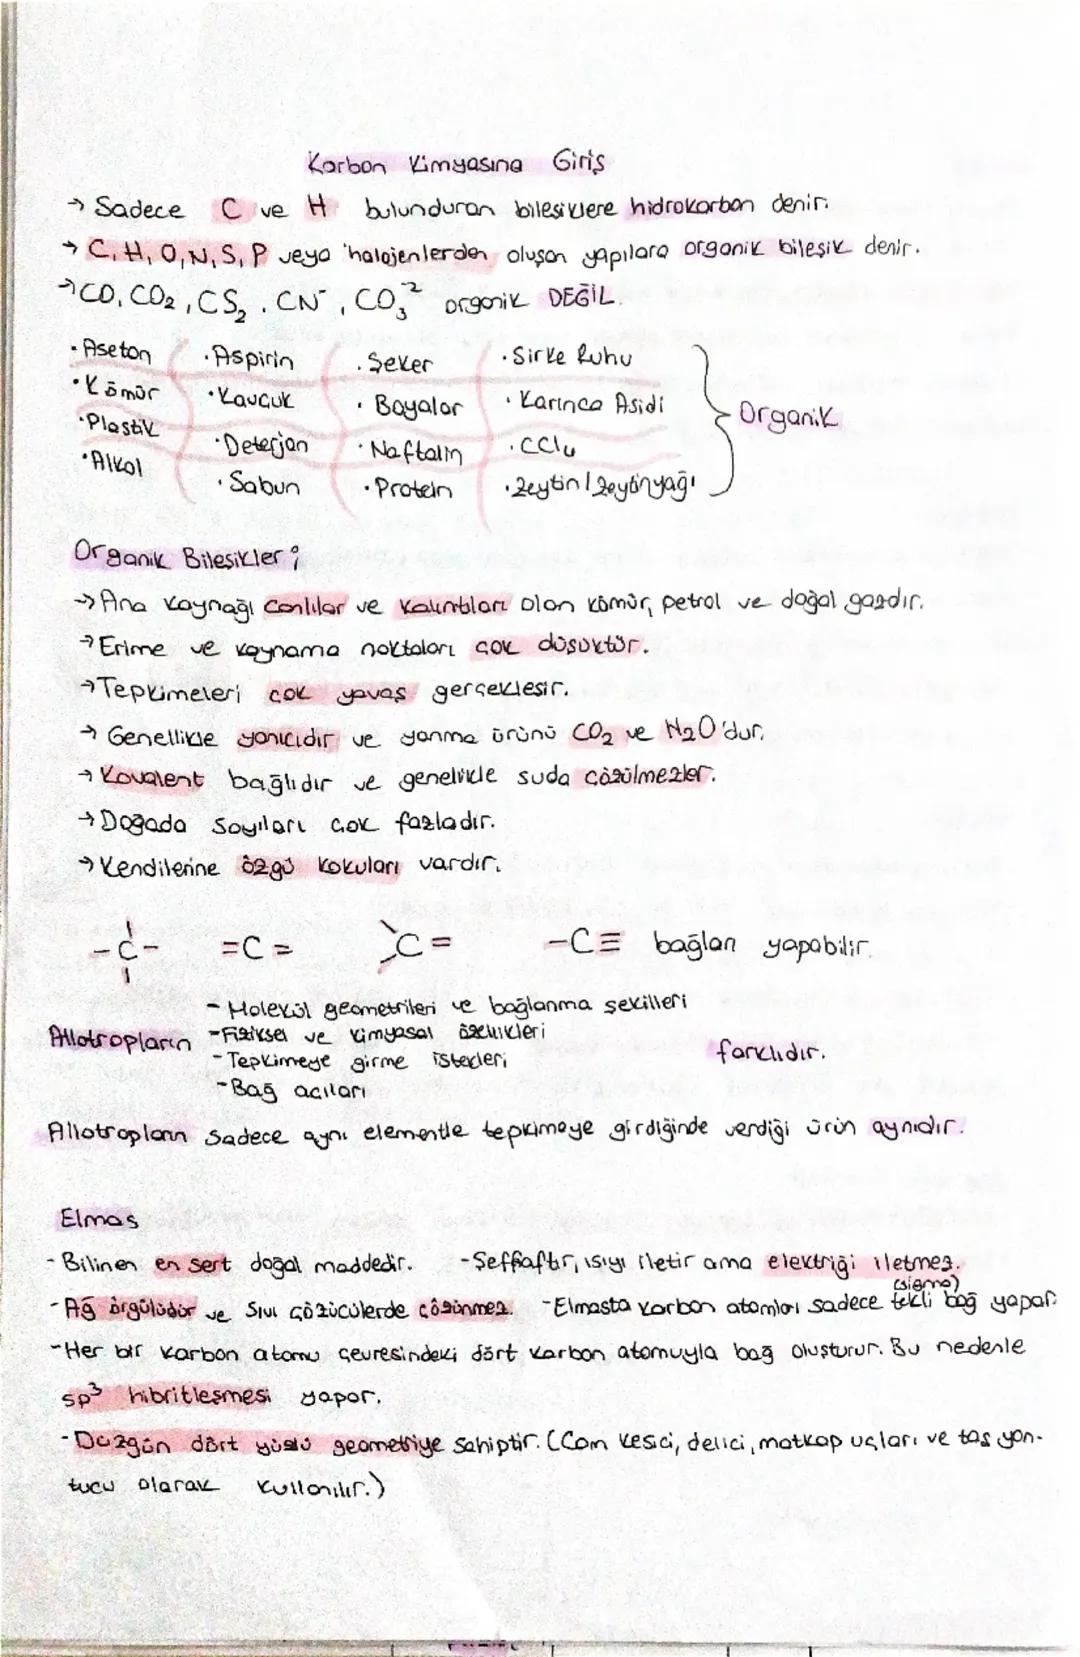 Karbon Kimyasına Giriş
→ Sadece C ve H bulunduran bileşiklere hidrokarbon denir.
→ C, H, O, N, S, P veya halojenlerden oluşan yapılara organik bileşik denir.
→ CO, CO₂, CS₂, CN⁻, CO₃⁻² organik DEĞİL.
• Aseton • Aspirin • Şeker • Sirke Ruhu
• Kömür • Kauçuk • Boyalar • Karınca Asidi
• Plastik • Deterjan • Naftalin • CCl₄
• Alkol • Sabun • Protein • Zeytin / Zeytinyağı
Organik
Organik Bileşikler;
→ Ana kaynağı canlılar ve kalıntıları olan kömür, petrol ve doğal gazdır.
→ Erime ve kaynama noktaları çok düşüktür.
→ Tepkimeleri çok yavaş gerçekleşir.
→ Genellikle yanıcıdır ve yanma ürünü CO₂ ve H₂O'dur.
→ Kovalent bağlıdır ve genellikle suda çözülmezler.
→ Doğada sayıları çok fazladır.
→ Kendilerine özgü kokuları vardır.
-C- =C= >C= -C≡ bağları yapabilir.
- Molekül geometrileri ve bağlanma şekilleri
Allotropların - Fiziksel ve kimyasal özellikleri
- Tepkimeye girme istekleri farklıdır.
- Bağ açıları
Allotropların sadece aynı elementle tepkimeye girdiğinde verdiği ürün aynıdır.
Elmas
- Bilinen en sert doğal maddedir. - Şeffaftır, ısıyı iletir ama elektriği iletmez.
(sigma)
- Ağ örgülüdür ve sıvı çözücülerde çözünmez. - Elmasta karbon atomları sadece tekli bağ yapar.
- Her bir karbon atomu çevresindeki dört karbon atomuyla bağ oluşturur. Bu nedenle
sp³ hibritleşmesi yapar.
- Düzgün dört yüzlü geometriye sahiptir. (Cam kesici, delici, matkap uçları ve taş yon-
tucu olarak kullanılır.)